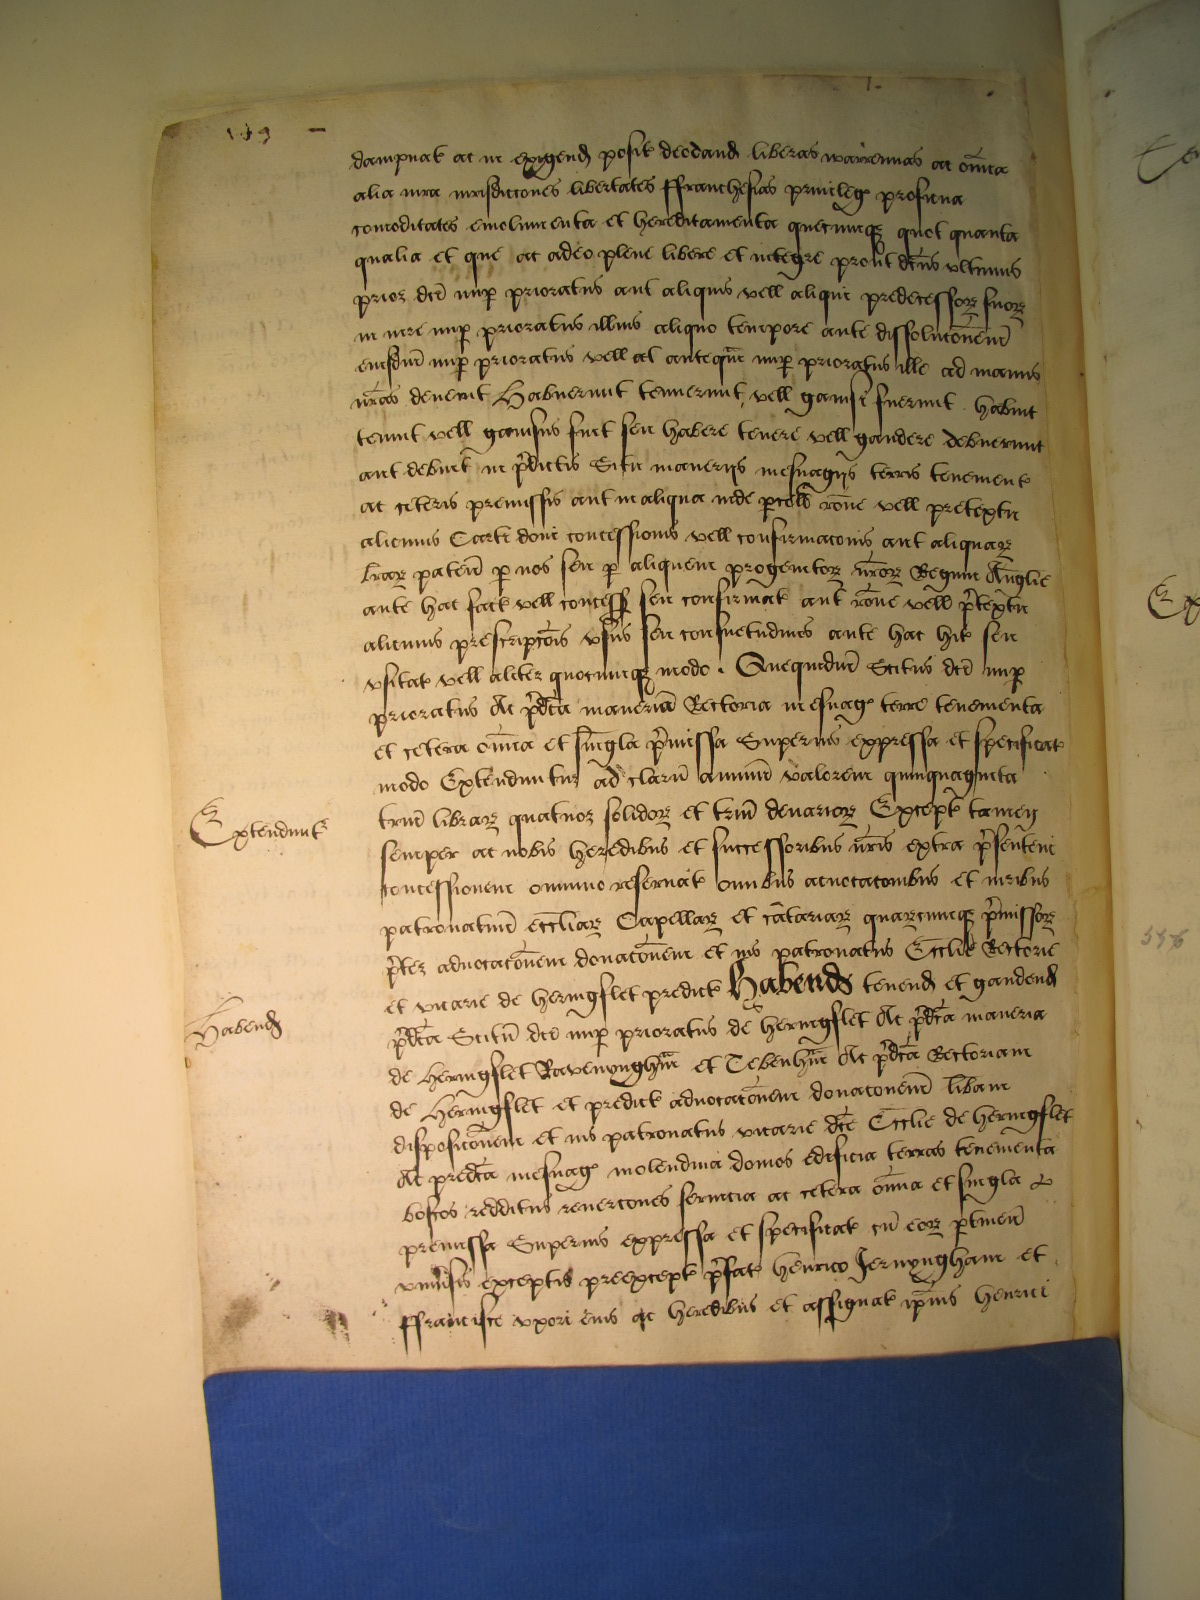 dampnat ac in exigend posit deodand liberas warrennas ac om̄ia
alia iura iurisdicciones libertates ffranchesias privileg proficua
comoditates emolumenta et hereditamenta quecumq quot quanta
qualia et que ac adeo plene libere et integre prout dc̄us ultimus
prior dc̄i nup prioratus aut aliquis vell aliqui predecessor suor
in iure nup prioratus illius aliquo tempore ante dissoluc̄onem̄
eiusdm̄ nup prioratus vell at anteqm̄ nup prioratus ille ad manus
nr̄as devenit Habuerunt tenuerunt vell gavisi fuerunt habuit
tenuit vell gavisus fuit seu habere tenere vell gaudere debuerunt
aut debuit in p̄dictis Situ manerijs mesuagijs terris tenement
ac ceteris premissis aut in aliqua inde pcell rōne vell pretextu
alicuius Carte doni concessionis vell confirmac̄onis aut aliquar
lrar paten̄ p nos seu p aliquem progenitor nr̄or Regum Anglie
ante hac fact vell concess seu confirmat aut rōne vell p̄textu
alicuius prescripc̄ois usus seu consuetudinis ante hac hit seu
usitat vell aliter quocumq modo . Quequidm̄ Scitus dc̄i nup
prioratus Ac p̄dc̄a maneria Rectoria mesuag terre tenementa
et cetera om̄ia et singla p̄missa Superius expressa et specificat
modo Extenduntur ad clarū annuū valorem quinquaginta
triū librar quatuor solidor et triū denarior Except tamen
semper ac nobis heredibus et successoribus nr̄is extra p̄sentem
concessionem omnino reservat omībus advocac̄onibus et iuribus
patronatuū eccliar Capellar et cantariar quarcumq p̄missor
p̄ter advocac̄onem donac̄onem et ius patronatus Ecclie Rectorie
et vicarie de heringflet predict Habend tenend et gaudend
p̄dc̄a Scitū dc̄i nup prioratus de heringflet Ac p̄dc̄a maneria
de heringflet Ravenynghm̄ et Tebenhm̄ Ac p̄dc̄a Rectoriam
de heringflet et predict advocac̄onem donac̄onem̄ lib̄am
disposic̄onem et ius patronatus vicarie dc̄e Ecclie de heringflet
Ac predc̄a mesuag molendina domos edificia terras tenementa
boscos redditus reverc̄ones servicia ac cetera om̄ia et singla
premissa Superius expressa et specificat cū eor ptinen̄
univ̄sis exceptis preexcept p̄fat henrico Jernyngham et
ffrancisce uxori eius ac heredibus et assignat ip̄ius henrici
Extendunt
Habend